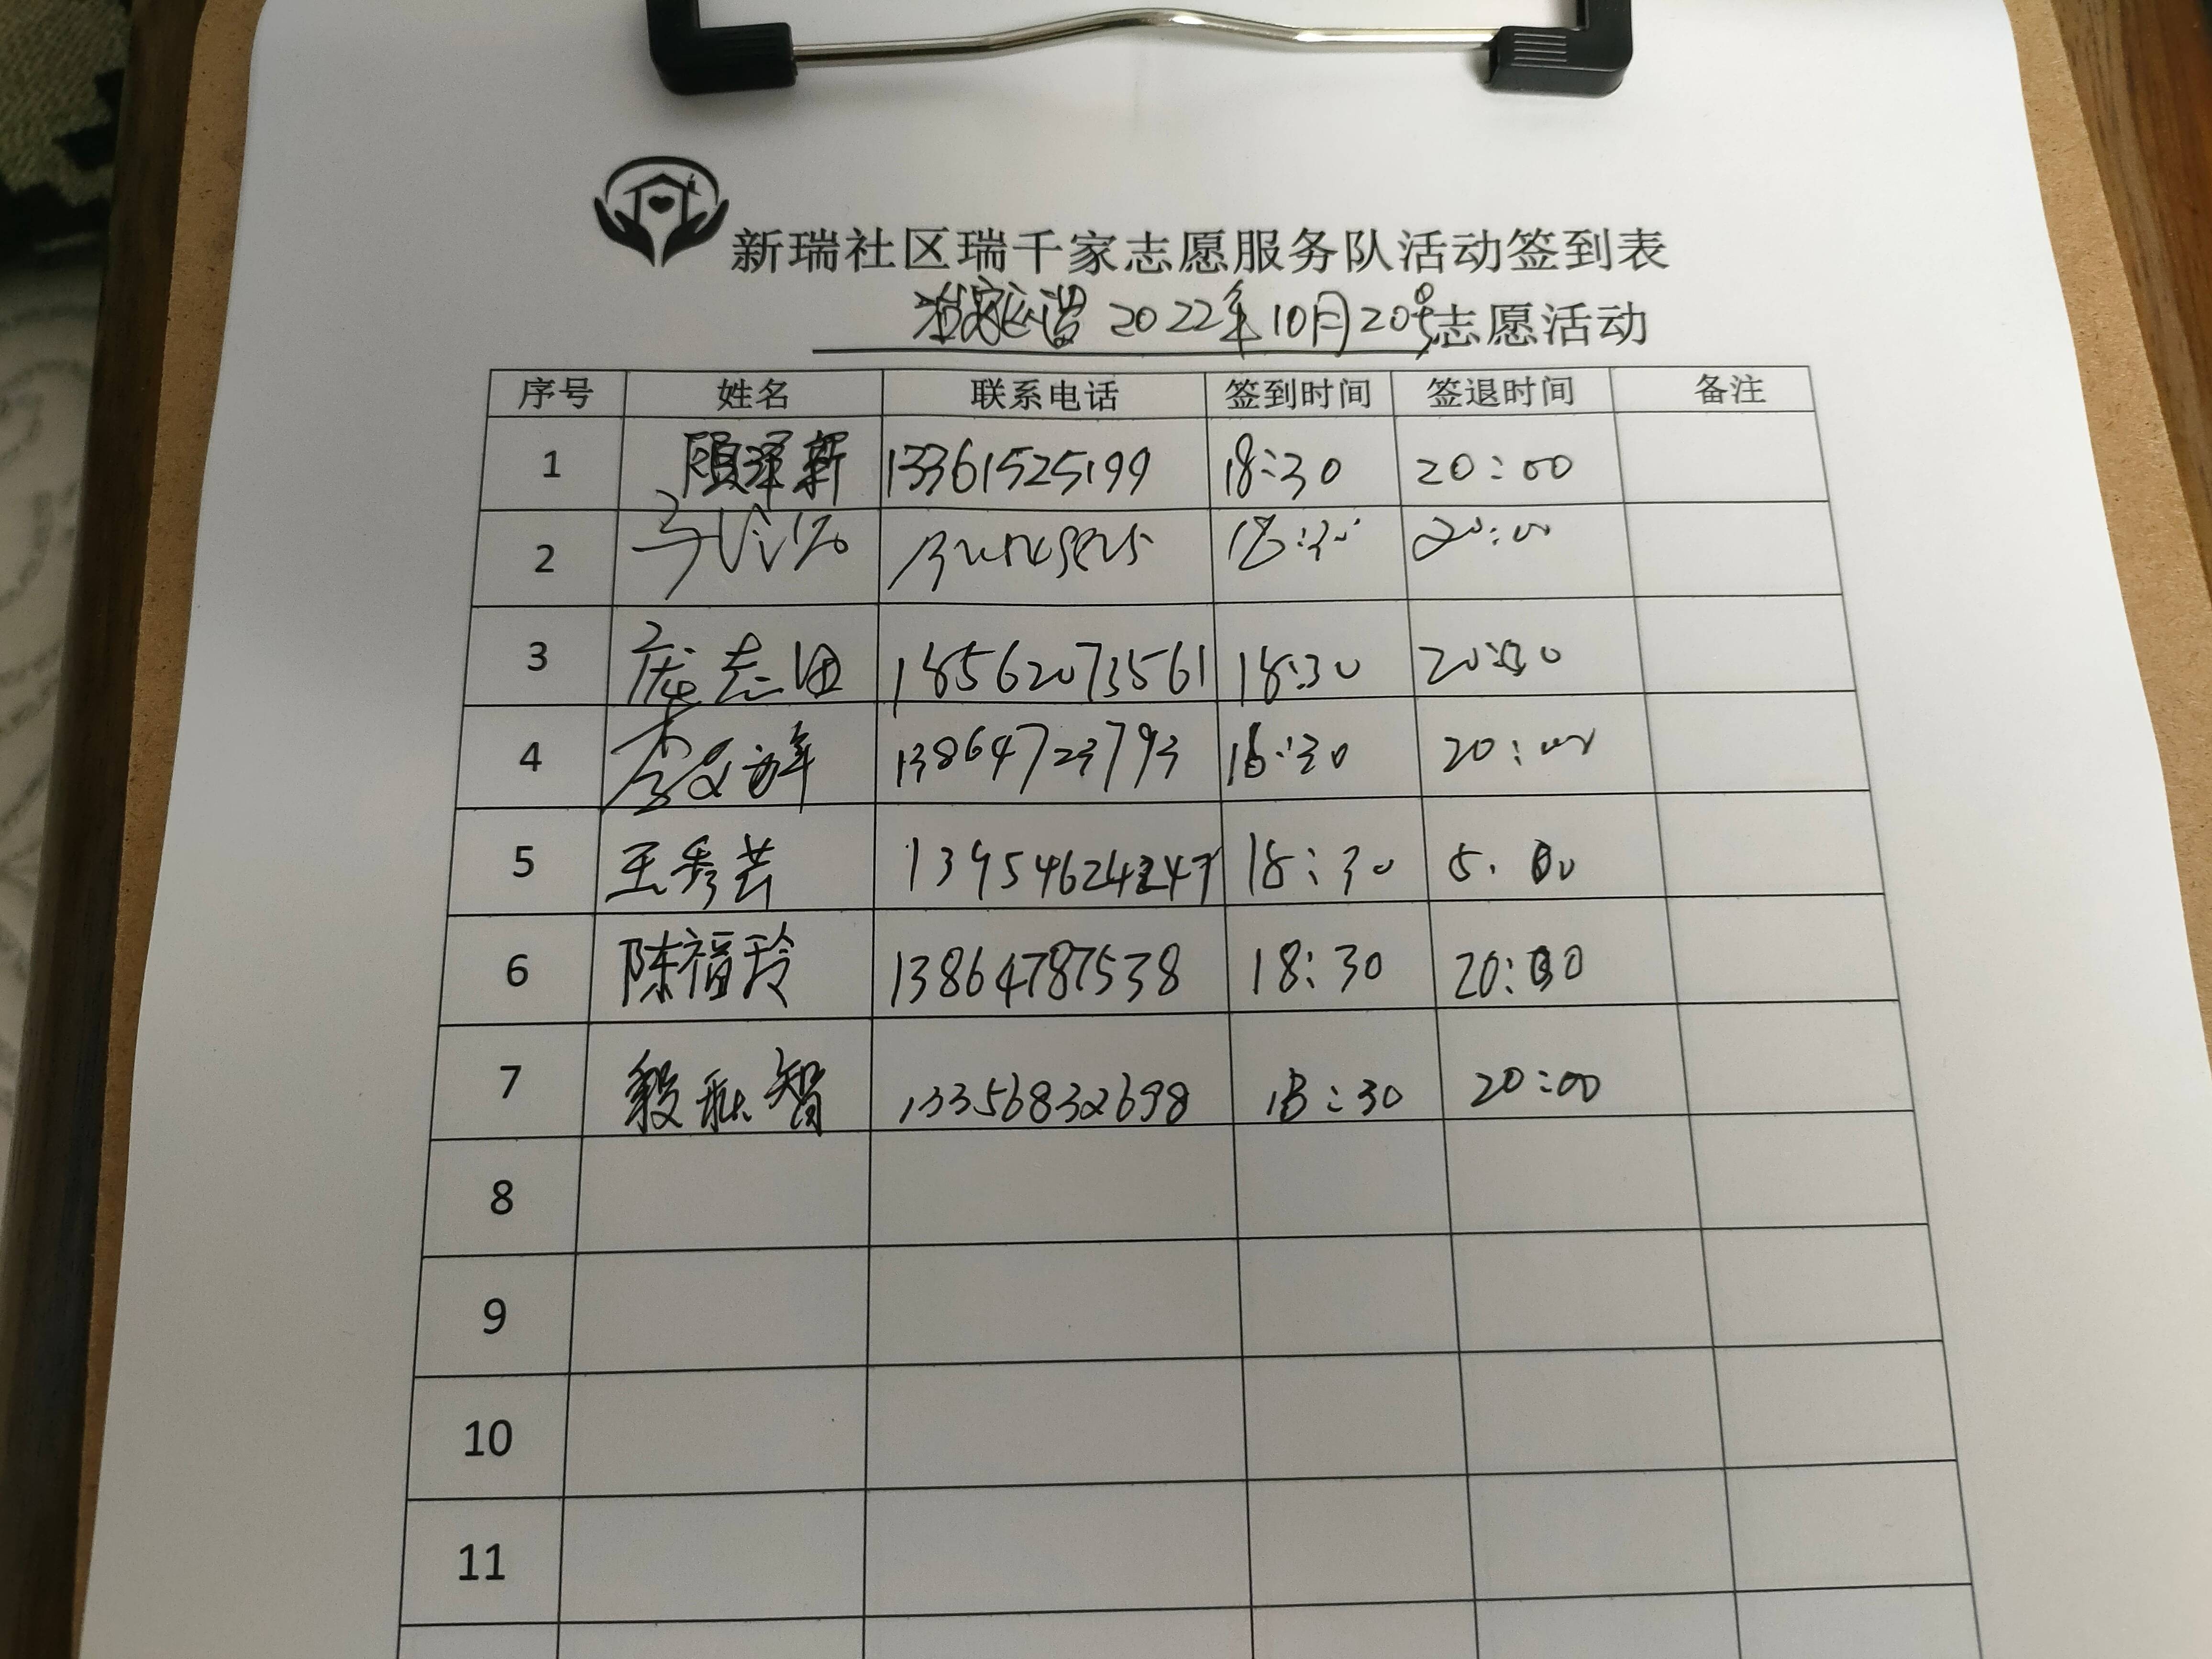 新瑞社区瑞千家志愿服务队活动签到表
2022年10月20号志愿活动
序号 姓名 联系电话 签到时间 签退时间 备注
1 顾泽新 13361525199 18:30 20:00
2 18:30 20:00
3 庞志田 18562073561 18:30 20:30
4 李 13864723793 18:30 20:00
5 王秀芸 18:30
6 陈福玲 13864787538 18:30 20:00
7 智 13356832698 18:30 20:00
8
9
10
11